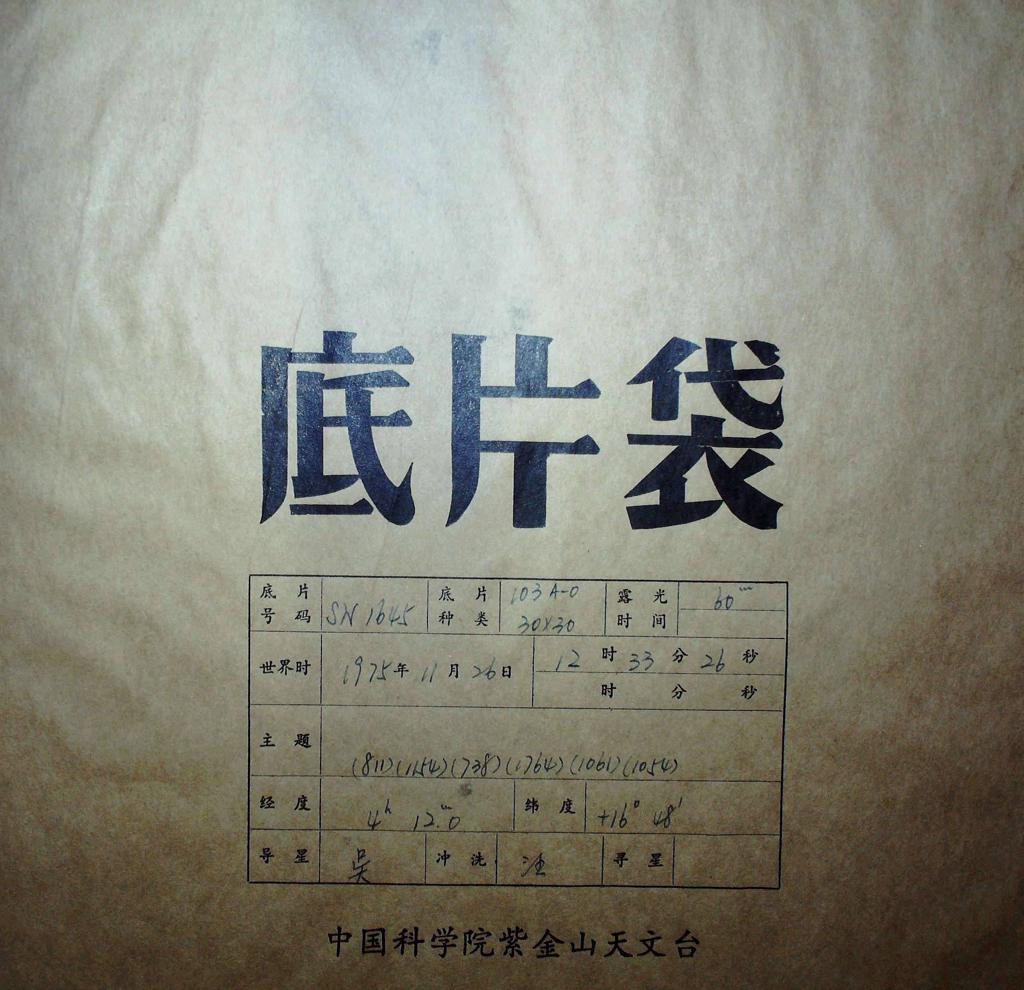 底片袋
底片号码 SN 1645 底片种类 103A-0 30×30 露光时间 60ᵐ
世界时 1975年 11月 26日 12时 33分 26秒
时 分 秒
主题 (811)(1154)(738)(1764)(1061)(1054)
经度 4ʰ 12ᵐ.0 纬度 +16° 48′
导星 吴 冲洗 汪 寻星
中国科学院紫金山天文台